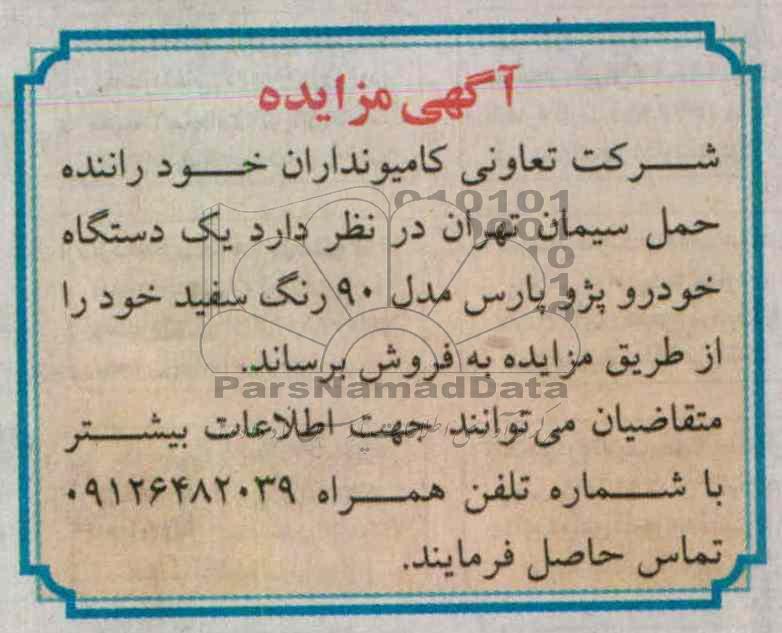 آگهی مزایده
شرکت تعاونی کامیونداران خود راننده
حمل سیمان تهران در نظر دارد یک دستگاه
خودرو پژو پارس مدل ۹۰ رنگ سفید خود را
از طریق مزایده به فروش برساند.
ParsNamadData
متقاضیان می‌توانند جهت اطلاعات بیشتر
با شماره تلفن همراه ۰۹۱۲۶۴۸۲۰۳۹
تماس حاصل فرمایند.